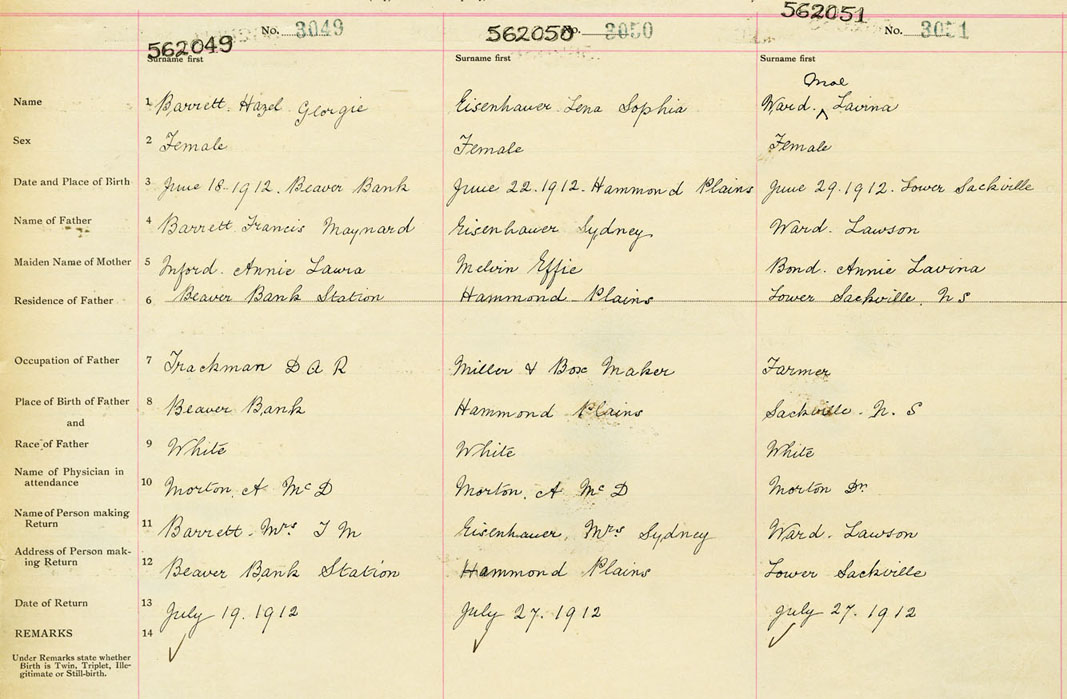 562049 No. 3049 562050 No. 3050 562051 No. 3051
Surname first Surname first Surname first
Mae
Name 1 Barrett. Hazel Georgie Eisenhauer Lena Sophia Ward. ^ Lavina
Sex 2 Female Female Female
Date and Place of Birth 3 June 18-1912. Beaver Bank June 22.1912. Hammond Plains June 29.1912. Lower Sackville
Name of Father 4 Barrett Francis Maynard Eisenhauer Sydney Ward. Lawson
Maiden Name of Mother 5 Annie Laura Melvin Effie Bond. Annie Lavina
Residence of Father 6 Beaver Bank Station Hammond Plains Lower Sackville, N S
Occupation of Father 7 Trackman D A R Miller & Box Maker Farmer
Place of Birth of Father 8 Beaver Bank Hammond Plains Sackville. N. S
and
Race of Father 9 White White White
Name of Physician in
attendance 10 Morton. A McD Morton. A McD Morton Dr.
Name of Person making
Return 11 Barrett. Mrs M Eisenhauer, Mrs Sydney Ward. Lawson
Address of Person mak-
ing Return 12 Beaver Bank Station Hammond Plains Lower Sackville
Date of Return 13 July 19.1912 July 27.1912 July 27.1912
REMARKS 14
Under Remarks state whether
Birth is Twin, Triplet, Ille-
gitimate or Still-birth.